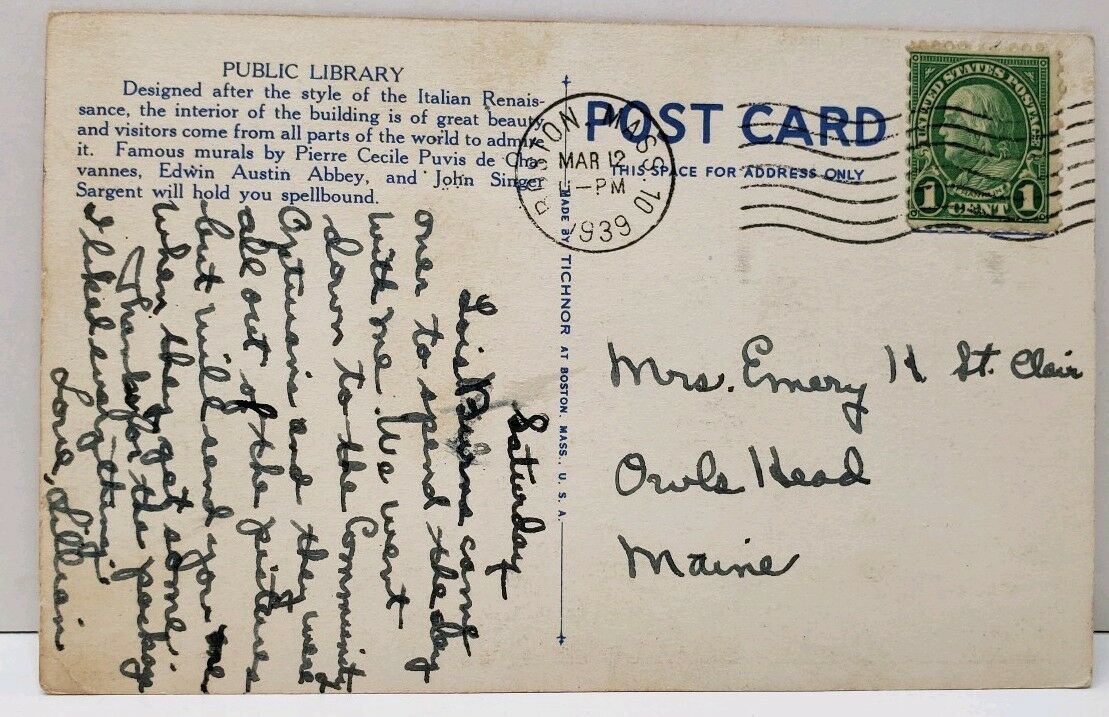 PUBLIC LIBRARY
Designed after the style of the Italian Renais-
sance, the interior of the building is of great beauty
and visitors come from all parts of the world to admire
it. Famous murals by Pierre Cecile Puvis de Cha-
vannes, Edwin Austin Abbey, and John Singer
Sargent will hold you spellbound.
POST CARD
THIS SPACE FOR ADDRESS ONLY
BOSTON, MASS. 10
MAR 12
1-PM
1939
UNITED STATES POSTAGE
FRANKLIN
1 CENT 1
MADE BY TICHNOR AT BOSTON, MASS., U. S. A.
Saturday
Lois came
over to spend the day
with me. We went
down to the Community
Opticians and they were
all out of the pictures
but will send you one
when they get some.
Thanks for the package
I liked everything.
Love, Lillian
Mrs. Emery H St. Clair
Owls Head
Maine